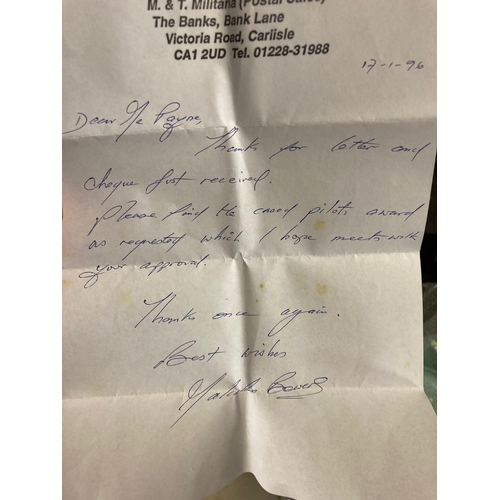 M. & T. Militaria (Postal Sales)
The Banks, Bank Lane
Victoria Road, Carlisle
CA1 2UD Tel. 01228-31988
17-1-96
Dear Mr Payne,
Thanks for letter and
cheque just received.
Please find the cased pilots award
as requested which I hope meets with
your approval.
Thanks once again.
Best wishes